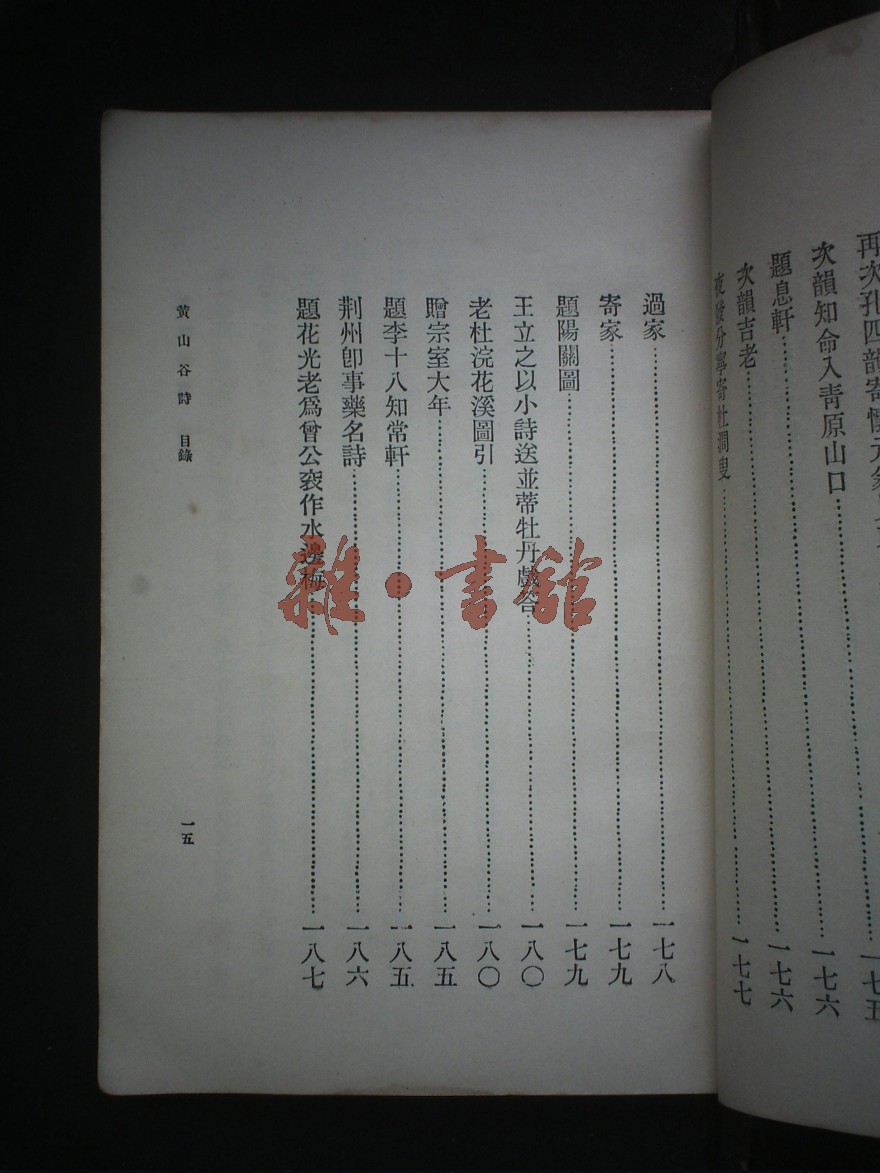 再次孔四韻寄懷元
一七五
次韻知命入青原山口……一七六
題息軒……一七六
次韻吉老……一七七
夜發分寧寄杜澗叟……
過家……一七八
寄家……一七九
題陽關圖……一七九
王立之以小詩送並蒂牡丹戲答……一八〇
老杜浣花溪圖引……一八〇
贈宗室大年……一八五
題李十八知常軒……一八五
荆州卽事藥名詩……一八六
題花光老爲曾公袞作水邊梅……一八七
黃山谷詩 目錄
一五
雜·書館